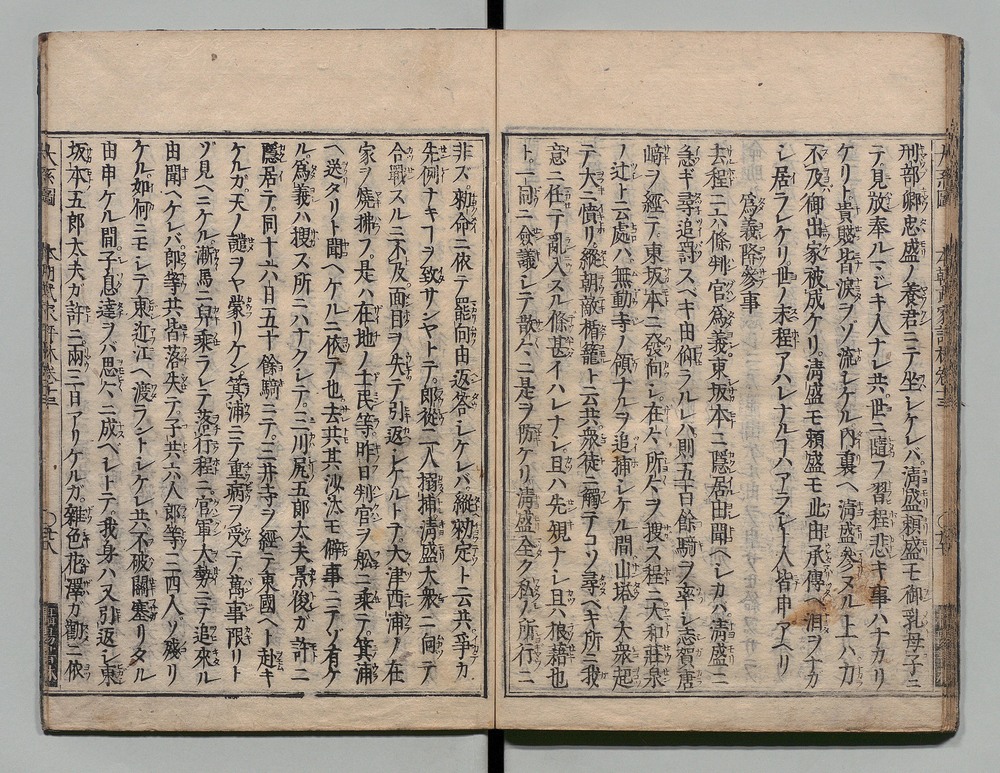 刑部卿忠盛ノ養君ニテ坐シケレバ清盛頼盛モ御乳母子ニ
テ見放奉ルマジキ人ナレ共世ニ隨フ習程悲キ事ハナカリ
ケリト貴賤皆涙ヲゾ流シケル内裏ヘ清盛参ヌル上ハ力
不及御出家被成ケリ清盛モ頼盛モ此由承傳ヘ泪ヲナカ
シ居ラレケリ世ノ末程アハレナルヿハアラシト人皆申アヘリ
爲義降參事
去程ニ六條判官爲義東坂本ニ隠居由聞ヘシカハ清盛ニ
急ギ尋追討スヘキ由仰ラルレハ則五百餘騎ヲ率シ志賀唐
崎ヲ經テ東坂本ニ發向シ在々所々ヲ搜ス程ニ大和莊泉
ノ辻ト云處ハ無動寺ノ領ナルヲ追捕シケル間山塔ノ大衆起
テ大ニ憤リ縱朝敵楯籠ト云共衆徒ニ觸テコソ尋ヘキ所ニ我
意ニ任テ亂入スル條甚イハレナシ且ハ先規ナシ且ハ狼藉也
ト一同ニ僉議シテ散々ニ是ヲ防ケルガ清盛全ク私ノ所行ニ
非ズ勅命ニ依テ罷向由返答シケレバ縱勅定ト云共爭カ
先例ナキヿヲ致サンヤトテ郎從二人搦捕清盛大衆ニ向テ
合戰スルニ不及面目ヲ失テ引返シケルトテ大津西浦ノ在
家ヲ燒拂フ是ハ在地ノ土民等昨日判官ヲ舩ニ乘テ箕浦
ヘ送タリト聞ヘケルニ依テ也去共其沙汰モ僻事ニテゾ有ケ
ル爲義ハ搜ス所ニハナクシテ三川尻五郎太夫景俊ガ許ニ
隠居テ同十六日五十餘騎ニテ三井寺ヲ經テ東國ヘト赴キ
ケルガ天ノ譴ヲヤ蒙リケン箕浦ニテ重病ヲ受テ萬事限リト
ゾ見ヘニケル漸馬ニ舁乘ラレテ落行程ニ官軍大勢ニテ追來ル
由聞ヘケレバ郎等共皆落失テ子共六人郎等ニ四人ゾ殘リ
ケル如何ニモシテ東近江ヘ渡ラントシケレ共不破關塞リタル
由申ケル間子息達ヲバ思々ニ成ベシトテ我身ハ又引返シ東
坂本五郎太夫ガ許ニ兩三日アリケルガ雜色花澤カ勸ニ依